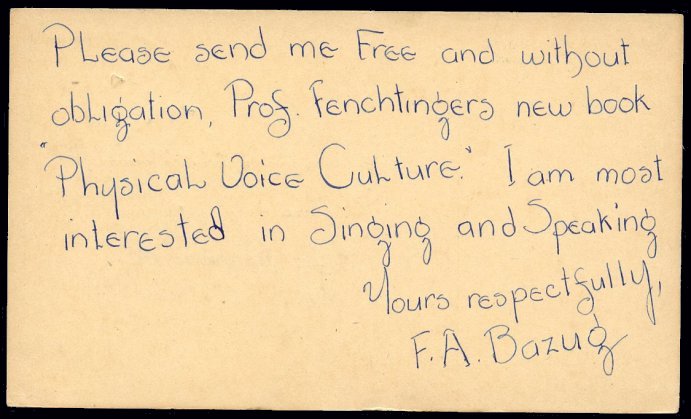 Please send me Free and without
obligation, Prof. Fenchtingers new book
"Physical Voice Culture." I am most
interested in Singing and Speaking
Yours respectfully,
F. A. Bazug